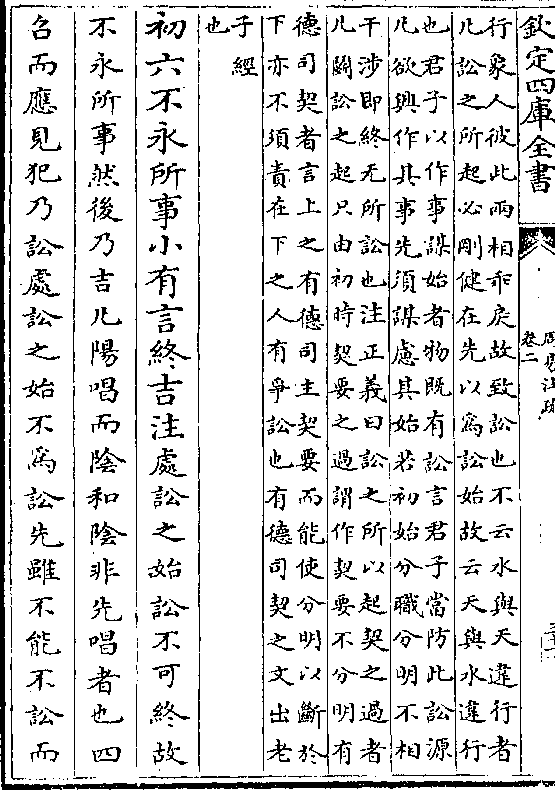 欽定四庫全書
周易注疏
卷二
行象人彼此兩相乖戾故致訟也不云水與天違行者
凡訟之所起必剛健在先以為訟始故云天與水違行
也君子以作事謀始者物既有訟言君子當防此訟源
凡欲興作其事先須謀慮其始若初始分職分明不相
干涉即終无所訟也注正義曰訟之所以起契之過者
凡鬭訟之起只由初時契要之過謂作契要不分明有
德司契者言上之有德司主契要而能使分明以斷於
下亦不須責在下之人有爭訟也有德司契之文出老
子經
也
初六不永所事小有言終吉注處訟之始訟不可終故
不永所事然後乃吉凡陽唱而陰和陰非先唱者也四
召而應見犯乃訟處訟之始不為訟先雖不能不訟而